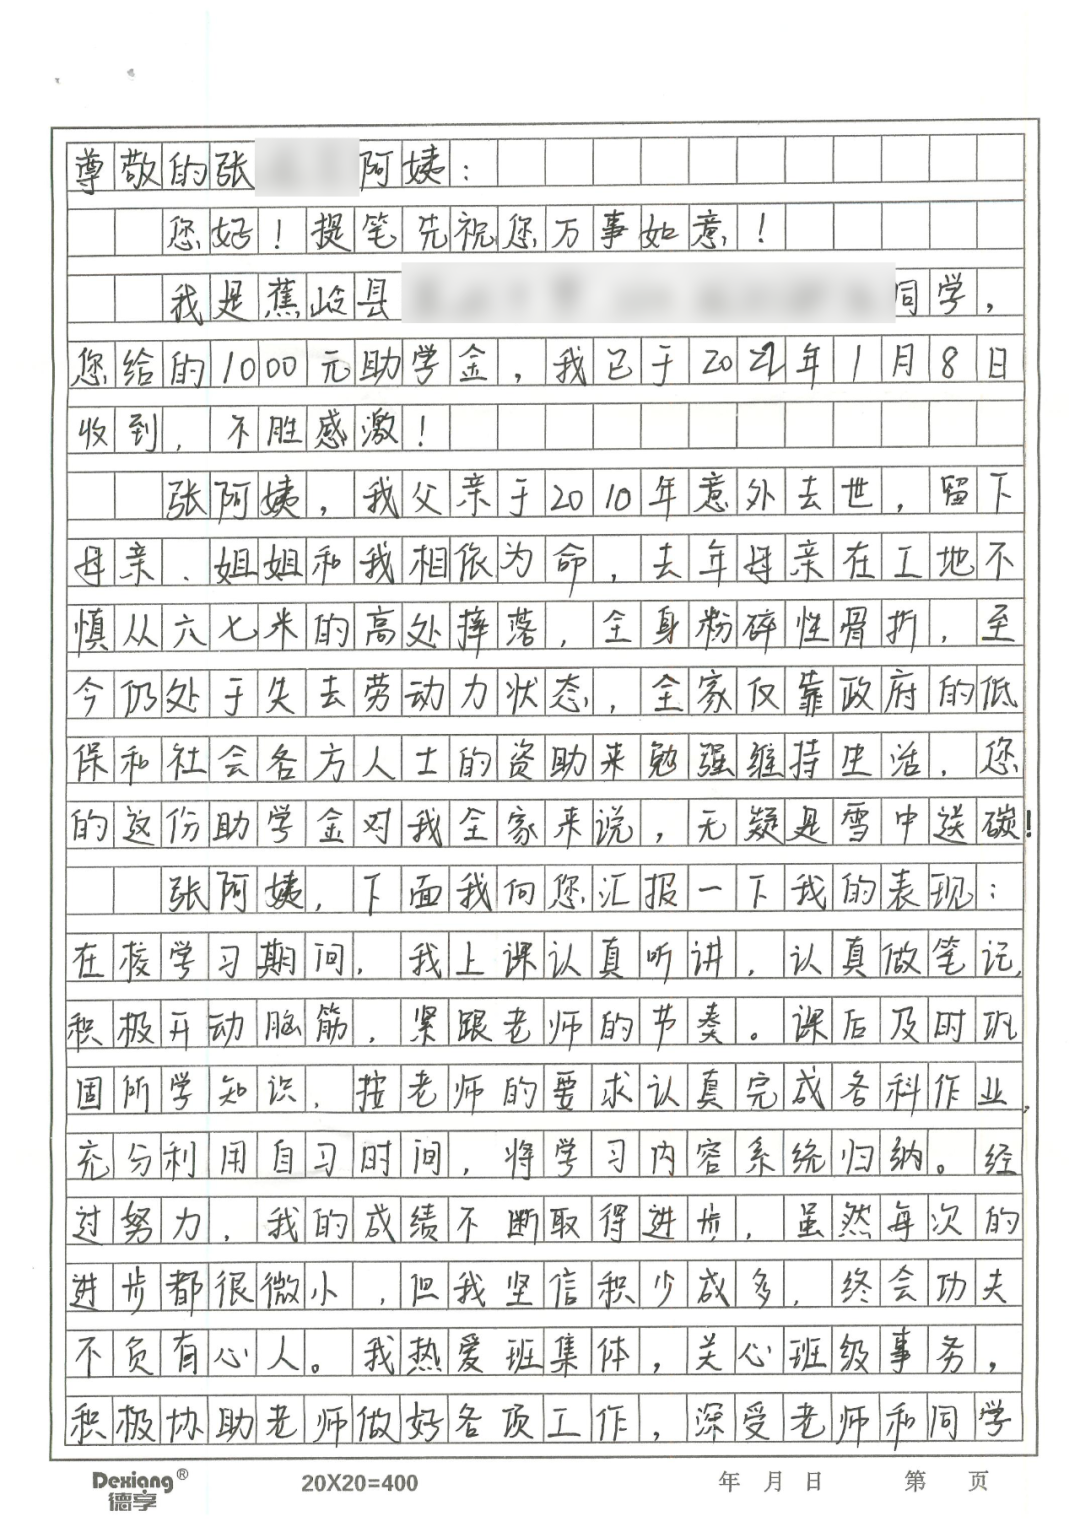 尊敬的张 阿姨：
您好！提笔先祝您万事如意！
我是蕉岭县 同学，
您给的1000元助学金，我已于2022年1月8日
收到，不胜感激！
张阿姨，我父亲于2010年意外去世，留下
母亲、姐姐和我相依为命，去年母亲在工地不
慎从六七米的高处摔落，全身粉碎性骨折，至
今仍处于失去劳动力状态，全家仅靠政府的低
保和社会各方人士的资助来勉强维持生活，您
的这份助学金对我全家来说，无疑是雪中送碳！
张阿姨，下面我向您汇报一下我的表现：
在校学习期间，我上课认真听讲，认真做笔记，
积极开动脑筋，紧跟老师的节奏。课后及时巩
固所学知识，按老师的要求认真完成各科作业，
充分利用自习时间，将学习内容系统归纳。经
过努力，我的成绩不断取得进步，虽然每次的
进步都很微小，但我坚信积少成多，终会功夫
不负有心人。我热爱班集体，关心班级事务，
积极协助老师做好各项工作，深受老师和同学
Dexiang®
德享
20X20=400
年 月 日 第 页